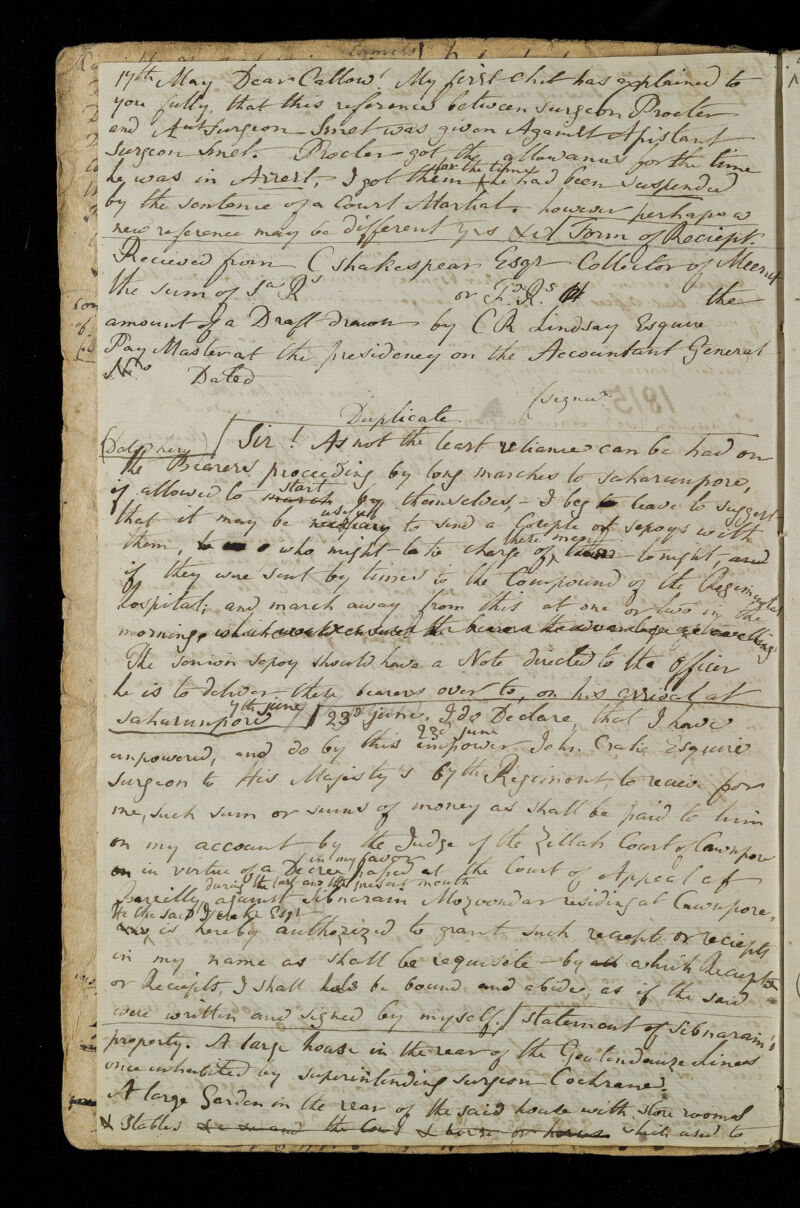 17th May Dear Callow! My first chit has explained to
you fully, that this reference between surgeon Procter
and Ast Surgeon Smet was given Against Assistant
Surgeon Smet. Procter got the allowances for the time
he was in Arrest, I got them for the time he had been suspended
by the sentence of a Court Martial. however perhaps a
new reference may be different yrs &c Form of Reciept.
Recieved from C Shakespear Esqr Collector of Meerut
the sum of Sa Rs or Fd. Rs. the
amount of a Draft drawn by C R Lindsay Esquire
Pay Master at the presidency on the Accountant General
No Dated
(signed
Duplicate
Sir! As not the least reliance can be had on
the Bearers proceeding by long marches to saharunpore,
if allowed to march start by themselves, I beg leave to suggest
that it may be necessary usefull to send a Couple of sepoys with
them, who might take charge of these men tonight, and
if they were sent by turns to the Compound of the Regimental
hospital; and march away from this at one or two in the
morning, which would ensure the bearers the advantage of travelling
The senior sepoy should have a Note directed to the officer
he is to deliver these bearers over to, on his arrival at
saharunpore 7th June 23d June. I do Declare, that I have
empowered, and do by this 23d June empower John Crake Esquire
Surgeon to His Majesty's 67th Regiment, to recieve for
me, such sum or sums of money as shall be paid to him
on my account by the Judge of the Zillah Court of Cawnpore
in virtue of a Decree in my favor passed at the Court of Appeal at
Bareilly during the last and the present month against Sibnarain Mozoondar residing at Cawnpore,
He the said J Crake Esqr is hereby authorized to grant such reciept or reciepts
in my name as shall be requisite by which Reciept
or Reciepts, I shall be bound and abide, as if the said
were written and signed by myself. statement of Sibnarain's
property. A large house in the rear of the Golendauze Lines
once inhabited by superintending surgeon Cochrane.
A large Garden in the rear of the said house with store rooms
& Stables the Cows & horse or horses which used to